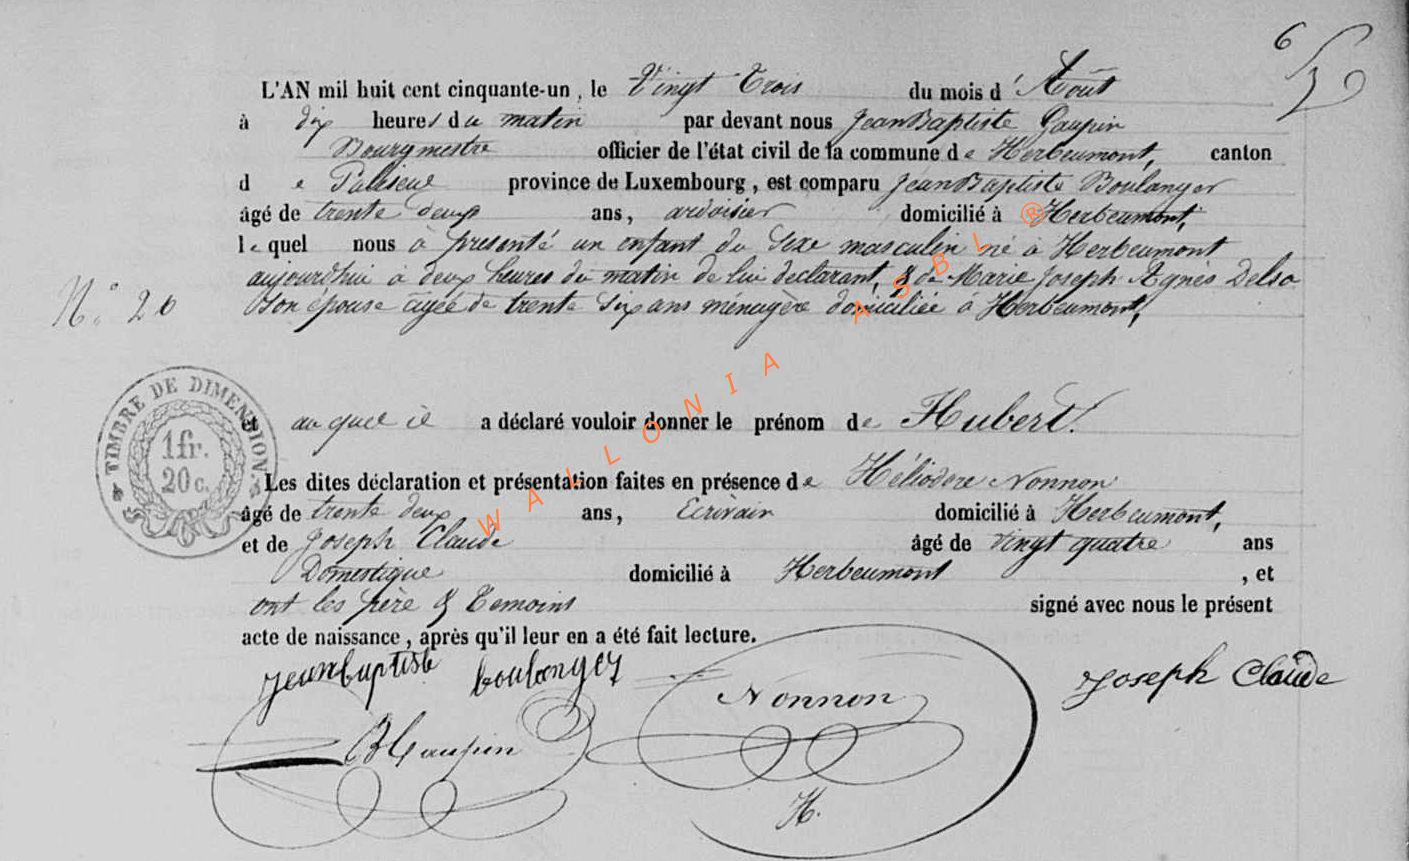 6
L'AN mil huit cent cinquante-un, le Vingt Trois du mois d' Août
à dix heures du matin par devant nous Jean Baptiste Gaupin
Bourgmestre officier de l'état civil de la commune de Herbeumont, canton
de Paliseul province de Luxembourg, est comparu Jean Baptiste Boulanger
âgé de trente deux ans, ardoisier domicilié à Herbeumont,
lequel nous à présenté un enfant du Sexe masculin né à Herbeumont
aujourd'hui à deux heures du matin de lui declarant, & de Marie Joseph Agnès Delso
Son épouse agée de trente six ans ménagère domiciliée à Herbeumont,
N.° 20
et au quel il a déclaré vouloir donner le prénom de Hubert.
TIMBRE DE DIMENSION.
1 fr.
20 c.
Les dites déclaration et présentation faites en présence de Héliodore Nonnon
âgé de trente deux ans, Ecrivain domicilié à Herbeumont,
et de Joseph Claude âgé de vingt quatre ans
Domestique domicilié à Herbeumont, et
ont les père & Temoins signé avec nous le présent
acte de naissance, après qu'il leur en a été fait lecture.
Jean baptiste boulanger
Nonnon
Joseph Claude
Gaupin
H.
WALLONIA ASBL ®